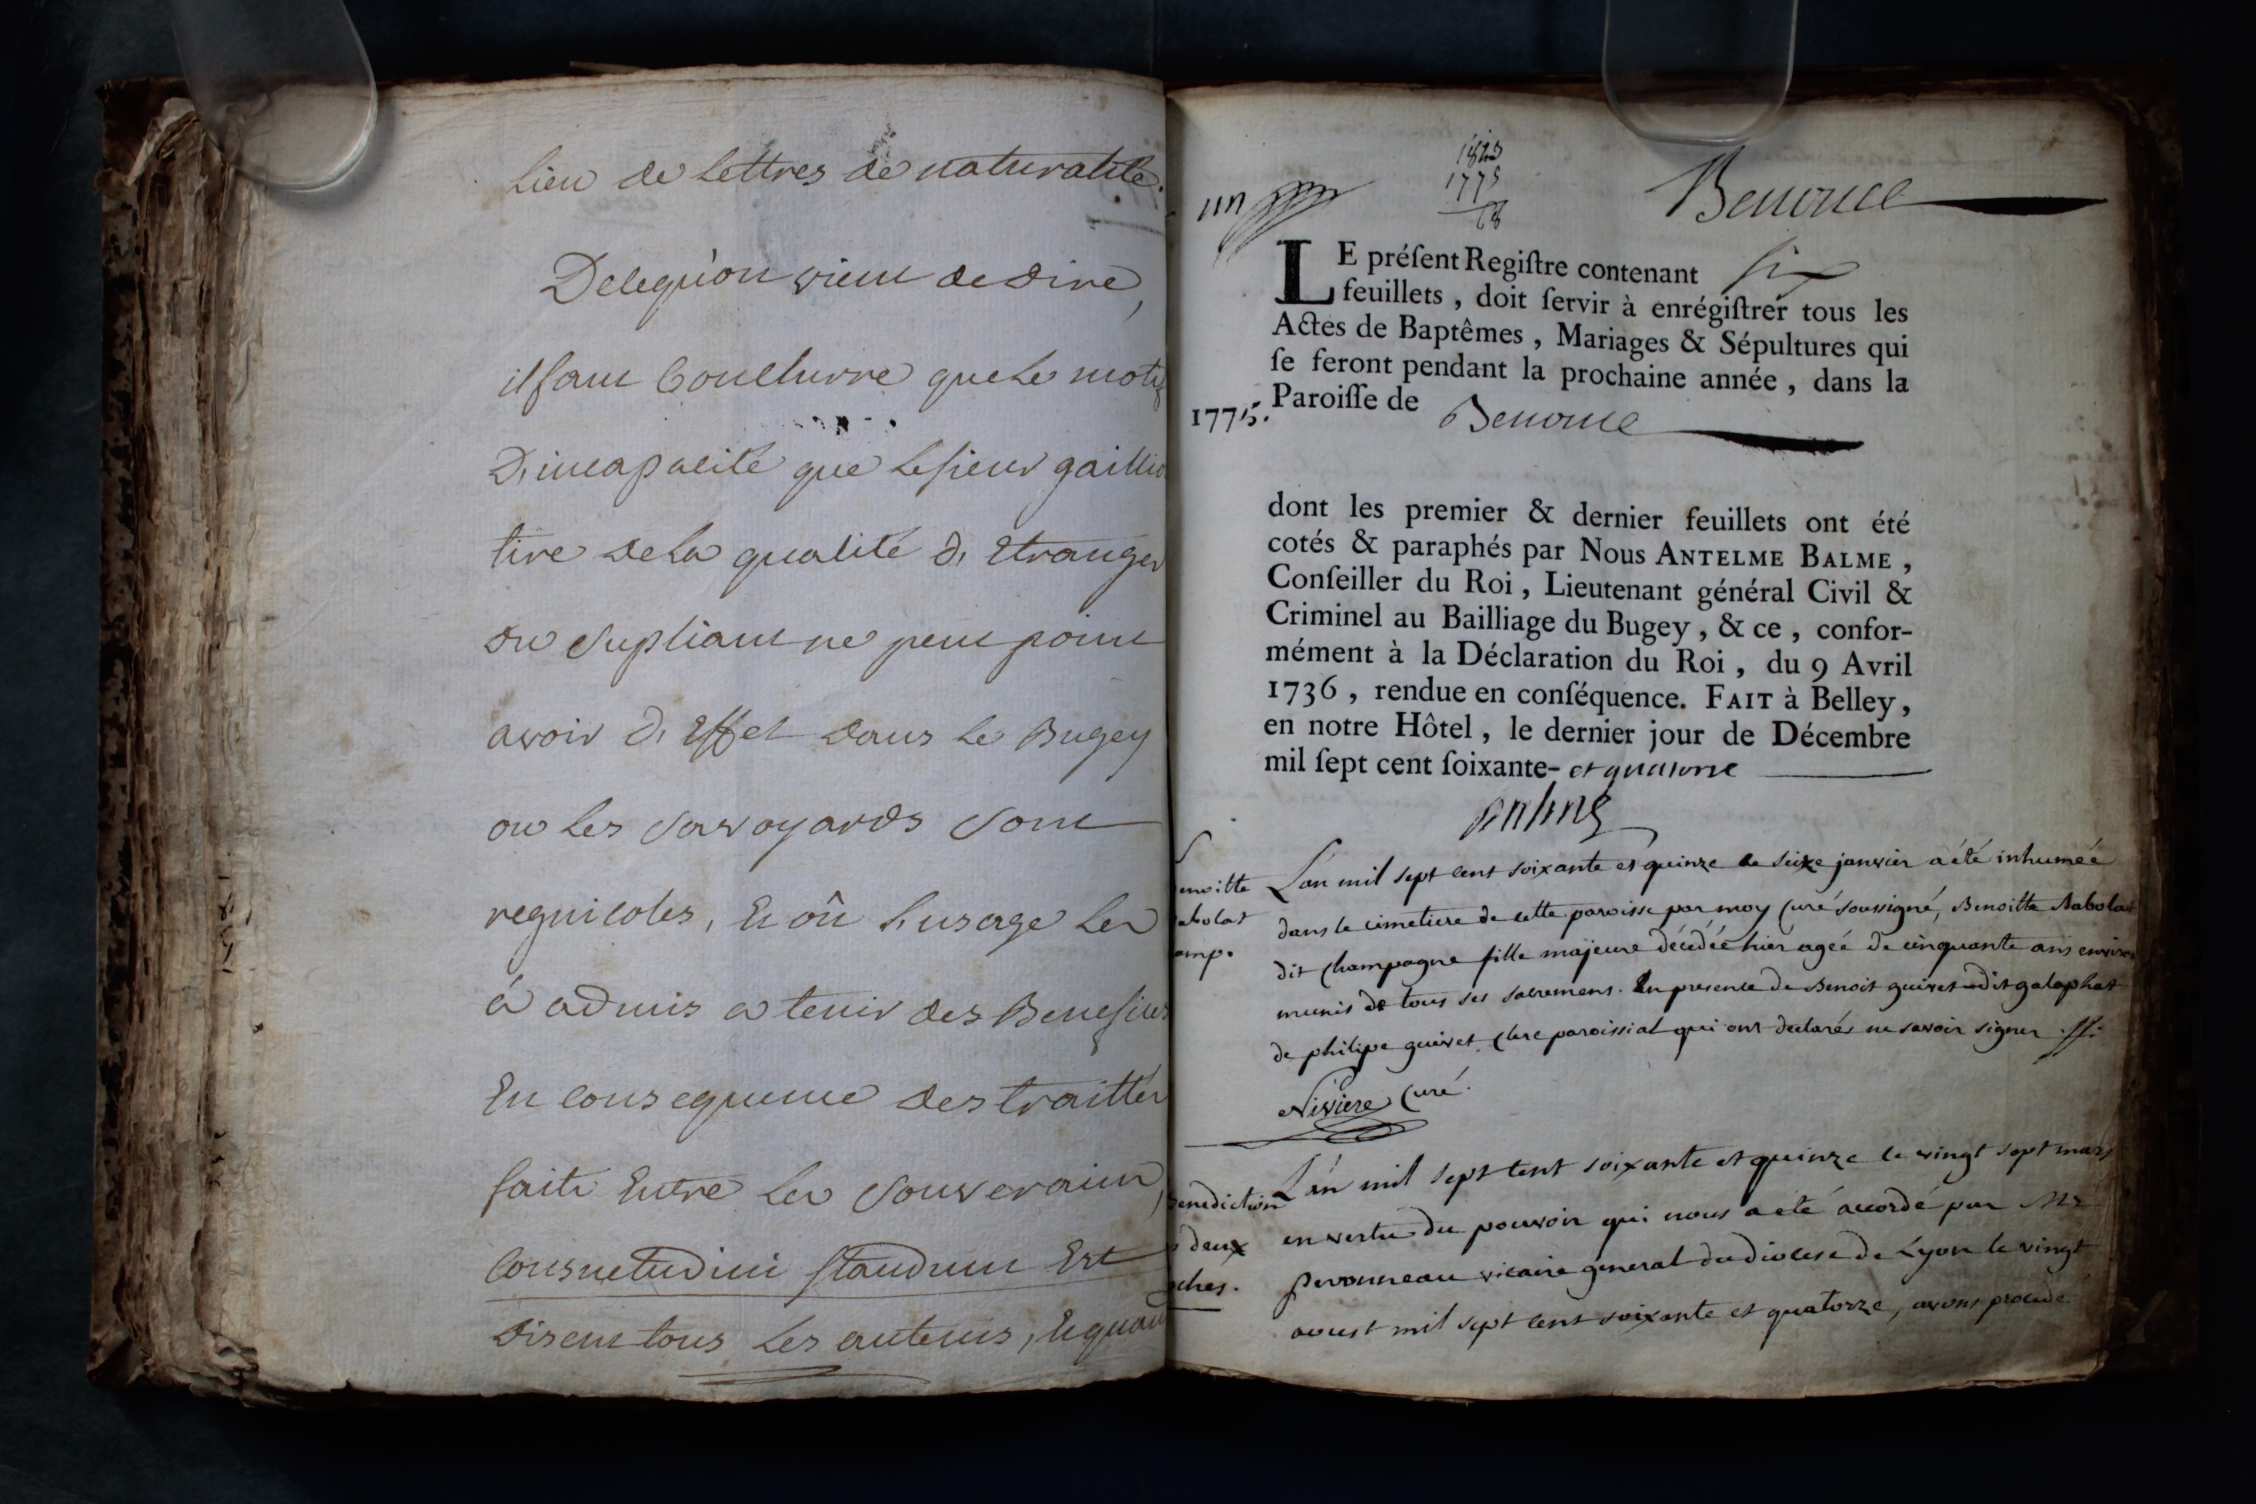 lieu de lettres de naturalité.
Delequ'on vient de dire,
il faut Conclurre que le motif
D'incapacité que le sieur gaillio
tire de la qualité d'Etranger
du supliant ne peut point
avoir d'Effet dans le Bugey
ou les savoyards sont
regnicoles, Et où l'usage les
à admis a tenir des Benefices
En consequence des traittés
faits Entre les souverains,
Consuetudini standum Est
disent tous les auteurs, Et quand
1843
1775
68
Benonce
LE préſent Regiſtre contenant six
feuillets, doit ſervir à enrégiſtrer tous les
Actes de Baptêmes, Mariages & Sépultures qui
ſe feront pendant la prochaine année, dans la
1775. Paroiſſe de Benonce
dont les premier & dernier feuillets ont été
cotés & paraphés par Nous ANTELME BALME,
Conſeiller du Roi, Lieutenant général Civil &
Criminel au Bailliage du Bugey, & ce, confor-
mément à la Déclaration du Roi, du 9 Avril
1736, rendue en conſéquence. FAIT à Belley,
en notre Hôtel, le dernier jour de Décembre
mil ſept cent ſoixante- et quatorze
enoitte
abolat
amp.
L'an mil sept cent soixante et quinze le seize janvier a été inhumée
dans le cimetiere de cette paroisse par moy Curé soussigné, Benoitte Rabolat
dit Champagne fille majeure décédée hier agée de cinquante ans environ
munis de tous ses sacremens. En presence de Benoit guivet dit galaphat
de philipe guivet Clerc paroissial qui ont declarés ne savoir signer
Niviere Curé.
Benediction
deux
oches.
L'an mil sept cent soixante et quinze le vingt sept mars
en vertu du pouvoir qui nous a été accordé par Mr
peronneau vicaire general du diocese de Lyon le vingt
aoust mil sept cent soixante et quatorze, avons procedé